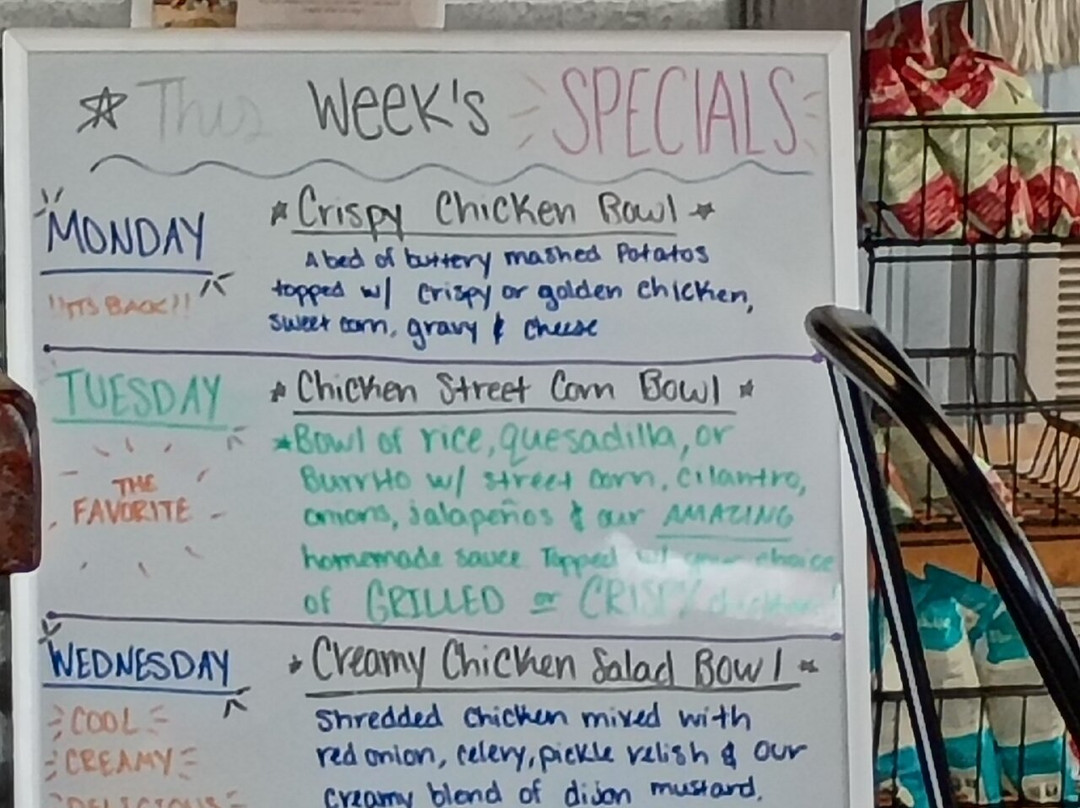 This Week's SPECIALS
MONDAY
!!ITS BACK!!
Crispy Chicken Bowl
A bed of buttery mashed Potatos
topped w/ crispy or golden chicken,
sweet corn, gravy & cheese
TUESDAY
THE
FAVORITE
Chicken Street Corn Bowl
Bowl of rice, quesadilla, or
Burrito w/ street corn, cilantro,
onions, jalapeños & our AMAZING
homemade sauce Topped w/ your choice
of GRILLED or CRISPY chicken!
WEDNESDAY
COOL
CREAMY
DELICIOUS
Creamy Chicken Salad Bowl
shredded chicken mixed with
red onion, celery, pickle relish & our
creamy blend of dijon mustard,